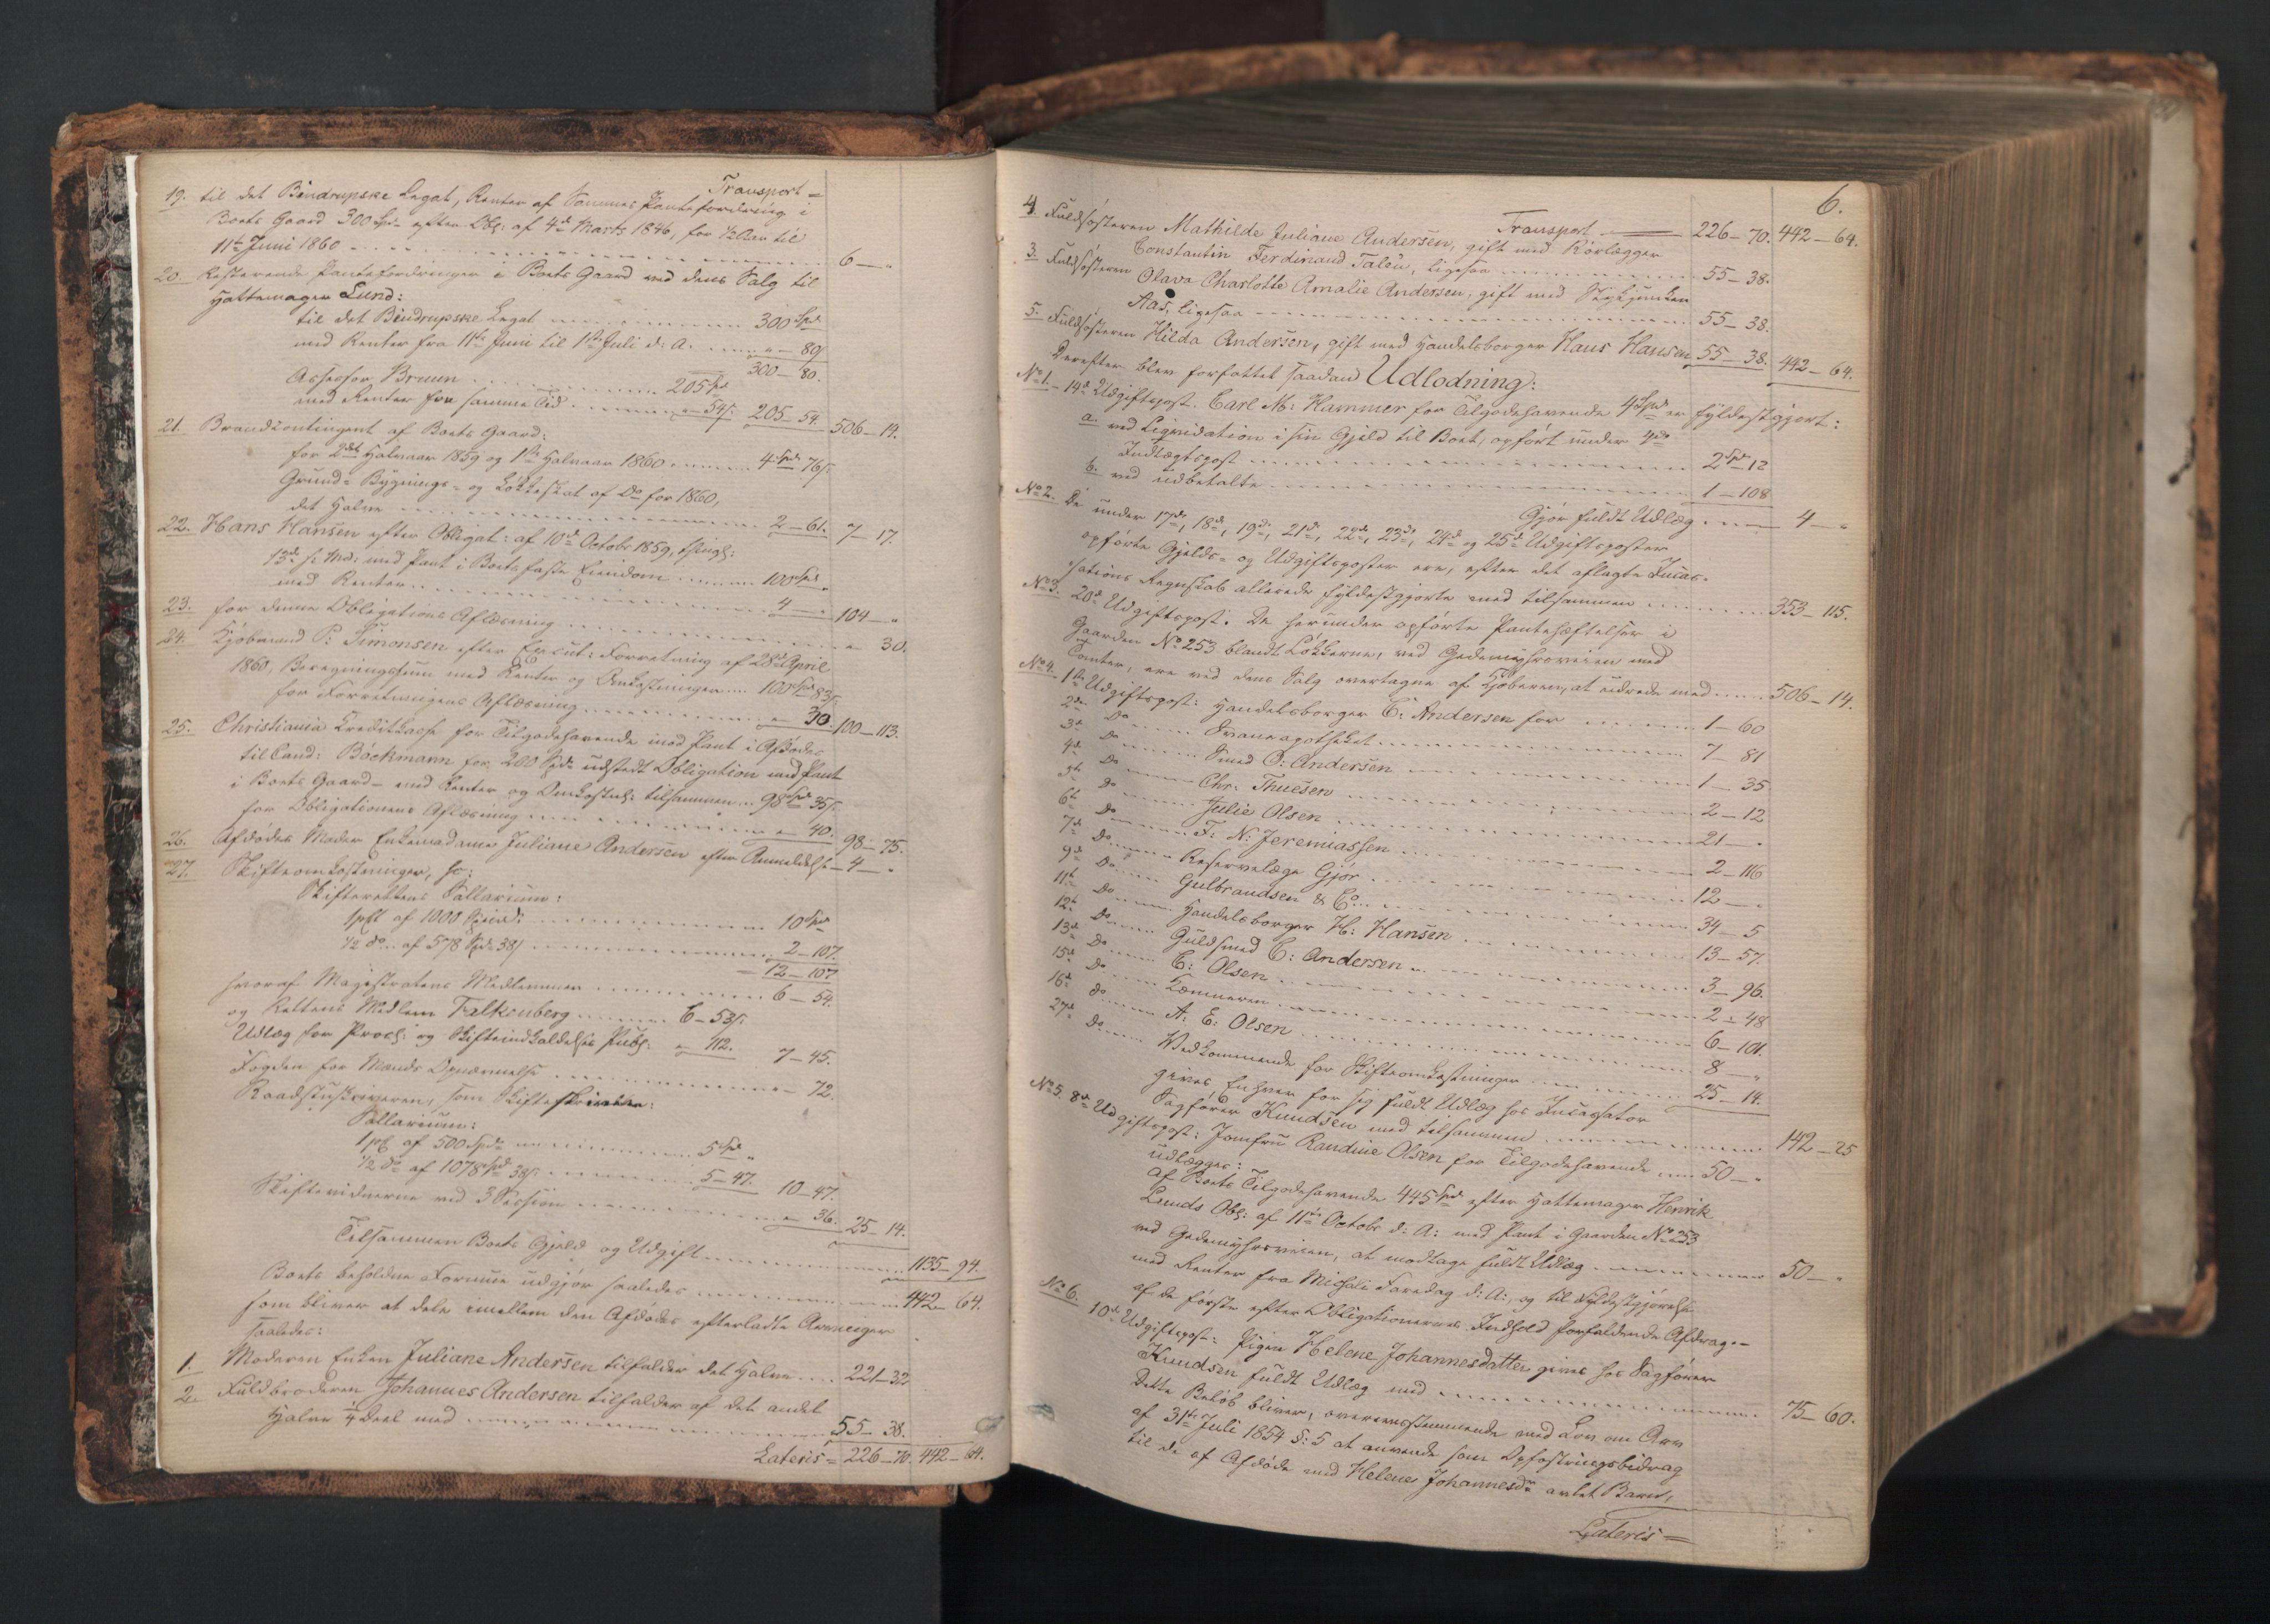 Transport =
19. til det Bindrupske Legat, Renter af Sammes Pantefordring i
Boets Gaard 300 Spd. efter Obl: af 4de Marts 1846, for ½ Aar til
11te Juni 1860 6 — "
20. Resterende Pantefordringer i Boets Gaard ved dens Salg til
Hattemager Lund:
til det Bindrupske Legat 300 Spd
med Renter fra 11te Juni til 1ste Juli d: A. " — 80/
300 — 80.
Assessor Bruun 205 Spd
med Renter for samme Tid " — 54/. 205 — 54. 506 — 14.
21. Brandcontingent af Boets Gaard:
for 2det Halvaar 1859 og 1ste Halvaar 1860 4 Spd 76/.
Grund- Bygnings- og Løkkeskat af Do for 1860,
det Halve 2 — 61. 7 — 17.
22. Hans Hansen efter Obligat: af 10de Octobr 1859, thingl:
13de s: Md: med Pant i Boets faste Eiendom 100 Spd "
med Renter 4 — " 104 — "
23. for denne Obligations Aflæsning " 30.
24. Kjøbmand P: Simonsen efter Execut: Forretning af 28de April
1860, Beregningssum med Renter og Omkostninger 100 Spd 83/.
for Forretningens Aflæsning " — 30. 100 — 113.
25. Christiania Creditkasse for Tilgodehavende mod Pant i Afdødes
til Cand: Bøckmann for 200 Spd. udstedt Obligation med Pant
i Boets Gaard — med Renter og Omkostn: tilsammen 98 Spd 35/.
for Obligationens Aflæsning " — 40. 98 — 75.
26. Afdødes Moder Enkemadame Juliane Andersen efter Anmeldelse — 4 — "
27. Skifteomkostninger, so:
Skifterettens Sallarium:
1 pCt af 1000 Spd: 10 Spd
½ do. af 578 Spd. 38/ 2 — 107.
— 12 — 107
hvoraf Magistratens Medlemmer 6 — 54.
og Rettens Medlem Falkenberg 6 — 53/.
Udlæg for Procl: og Skifteindkaldelses Publ: " 112. 7 — 45.
Fogden for Mænds Opnævnelse " — 72.
Raadstuskriveren, som Skifteskriver:
Sallarium:
1 pC af 500 Spd. 5 Spd "
½ do af 1078 Spd 38/. 5 — 47. 10 — 47.
Skiftevidnerne ved 3 Session " 36. 25 — 14.
Tilsammen Boets Gjeld og Udgift 1135 — 94.
Boets beholdne Formue udgjør saaledes 442 — 64.
som bliver at dele imellem den Afdødes efterladte Arvinger
saaledes:
1. Moderen Enken Juliane Andersen tilfalder det Halve 221 — 32
2. Fuldbroderen Johannes Andersen tilfalder af det andet
Halve ¼ Deel med 55 — 38.
Lateris = 226 — 70. 442 — 64.
6.
Transport 226 — 70. 442 — 64.
4. Fuldsøsteren Mathilde Juliane Andersen, gift med Rørlægger
Constantin Ferdinand Talén, ligesaa 55 — 38.
3. Fuldsøsteren Olava Charlotte Amalie Andersen, gift med
Aas, ligesaa 55 — 38.
5. Fuldsøsteren Hilda Andersen, gift med Handelsborger Hans Hansen 55 — 38. 442 — 64.
Derefter blev forfattet saadan Udlodning:
No 1. 14de Udgiftspost. Carl M: Hammer for Tilgodehavende 4 Spd er fyldestgjort:
a. ved Liqvidation i sin Gjeld til Boet, opført under 4de
Indtægtspost 2 Spd 12
b. ved udbetalte 1 — 108
Gjør fuldt Udlæg 4 — "
No 2. De under 17de, 18de, 19de, 21de, 22de, 23de, 24de og 25de Udgiftsposter
opførte Gjelds- og Udgiftsposter ere, efter det aflagte Incas-
sations Regnskab allerede fyldestgjorte med tilsammen 353 — 115.
No 3. 20de Udgiftspost. De herunder opførte Pantehæftelser i
Gaarden No 253 blandt Løkkerne, ved Gedemyhrsveien med
Tomter, ere ved dens Salg overtagne af Kjøberen, at udrede med 506 — 14.
No 4. 1ste Udgiftspost: Handelsborger C: Andersen for 1 — 60
2de Do Svaneapotheket 7 — 81
3de Do Smed O: Andersen 1 — 35
4de Do Chr: Thuesen 2 — 12
5te do Julie Olsen 21 — "
6te Do F: N: Jeremiassen 2 — 116
7de Do Reservelæge Gjør 12 — "
9de Do Gulbrandsen & Co 34 — 5
11te Do Handelsborger H: Hansen 13 — 57.
12te Do Guldsmed C: Andersen 3 — 96.
13de Do C: Olsen 2 — 48
15de Do Kæmneren 6 — 101.
16de do A: E: Olsen 8 — "
27de Do Vedkommende for Skifteomkostninger 25 — 14.
gives Enhver for sig fuldt Udlæg hos Incassator
Sagfører Knudsen med tilsammen 142 — 25
No 5. 8de Udgiftspost: Jomfru Randine Olsen for Tilgodehavende 50 — "
udlægges:
Af Boets Tilgodehavende 445 Spd efter Hattemager Henrik
Lunds Obl: af 11te Octobr d: A: med Pant i Gaarden No 253
ved Gedemyhrsveien, at modtage fuldt Udlæg 50 — "
med Renter fra Michali Faredag d: A:, og til Fyldestgjørelse
af de første efter Obligationernes Indhold forfaldende Afdrag. —
No 6. 10de Udgiftspost: Pigen Helene Johannesdatter gives hos Sagfører
Knudsen fuldt Udlæg med 75 — 60.
Dette Beløb bliver, overensstemmende med Lov om Arv
af 31te Juli 1854 §: 5 at anvende som Opfostringsbidrag
til de af Afdøde med Helene Johannesdr avlet Barn,
Lateris =